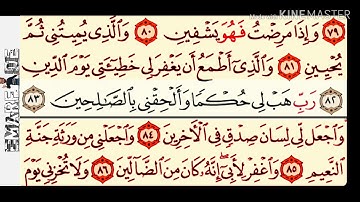 Made with
KINEMASTER
EMARE TQE
٧٩ وَإِذَا مَرِضْتُ فَهُوَ يَشْفِينِ ٨٠ وَٱلَّذِى يُمِيتُنِى ثُمَّ
يُحْيِينِ ٨١ وَٱلَّذِىٓ أَطْمَعُ أَن يَغْفِرَ لِى خَطِيٓـَٔتِى يَوْمَ ٱلدِّينِ
٨٢ رَبِّ هَبْ لِى حُكْمًا وَأَلْحِقْنِى بِٱلصَّـٰلِحِينَ ٨٣
وَٱجْعَل لِّى لِسَانَ صِدْقٍ فِى ٱلْـَٔاخِرِينَ ٨٤ وَٱجْعَلْنِى مِن وَرَثَةِ جَنَّةِ
ٱلنَّعِيمِ ٨٥ وَٱغْفِرْ لِأَبِىٓ إِنَّهُۥ كَانَ مِنَ ٱلضَّآلِّينَ ٨٦ وَلَا تُخْزِنِى يَوْمَ